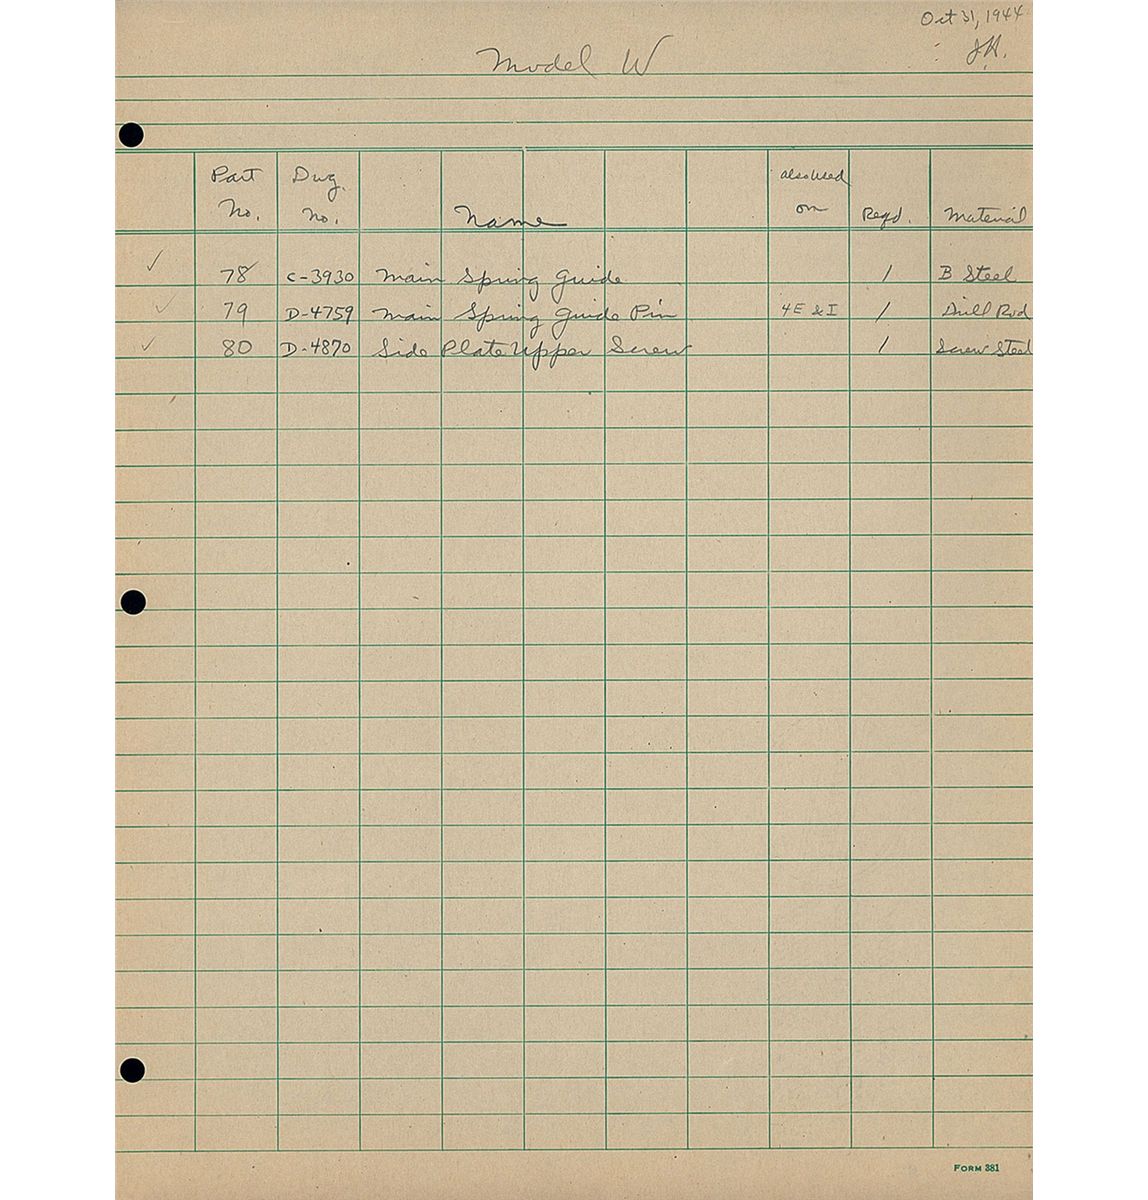 Oct 31, 1944
J.H.
Model W
Part No. Dwg. No. Name also used on Reqd. Material
✓ 78 C-3930 Main Spring Guide 1 B Steel
✓ 79 D-4759 Main Spring Guide Pin 4E & I 1 Drill Rod
✓ 80 D-4870 Side Plate Upper Screw 1 Screw Steel
FORM 381